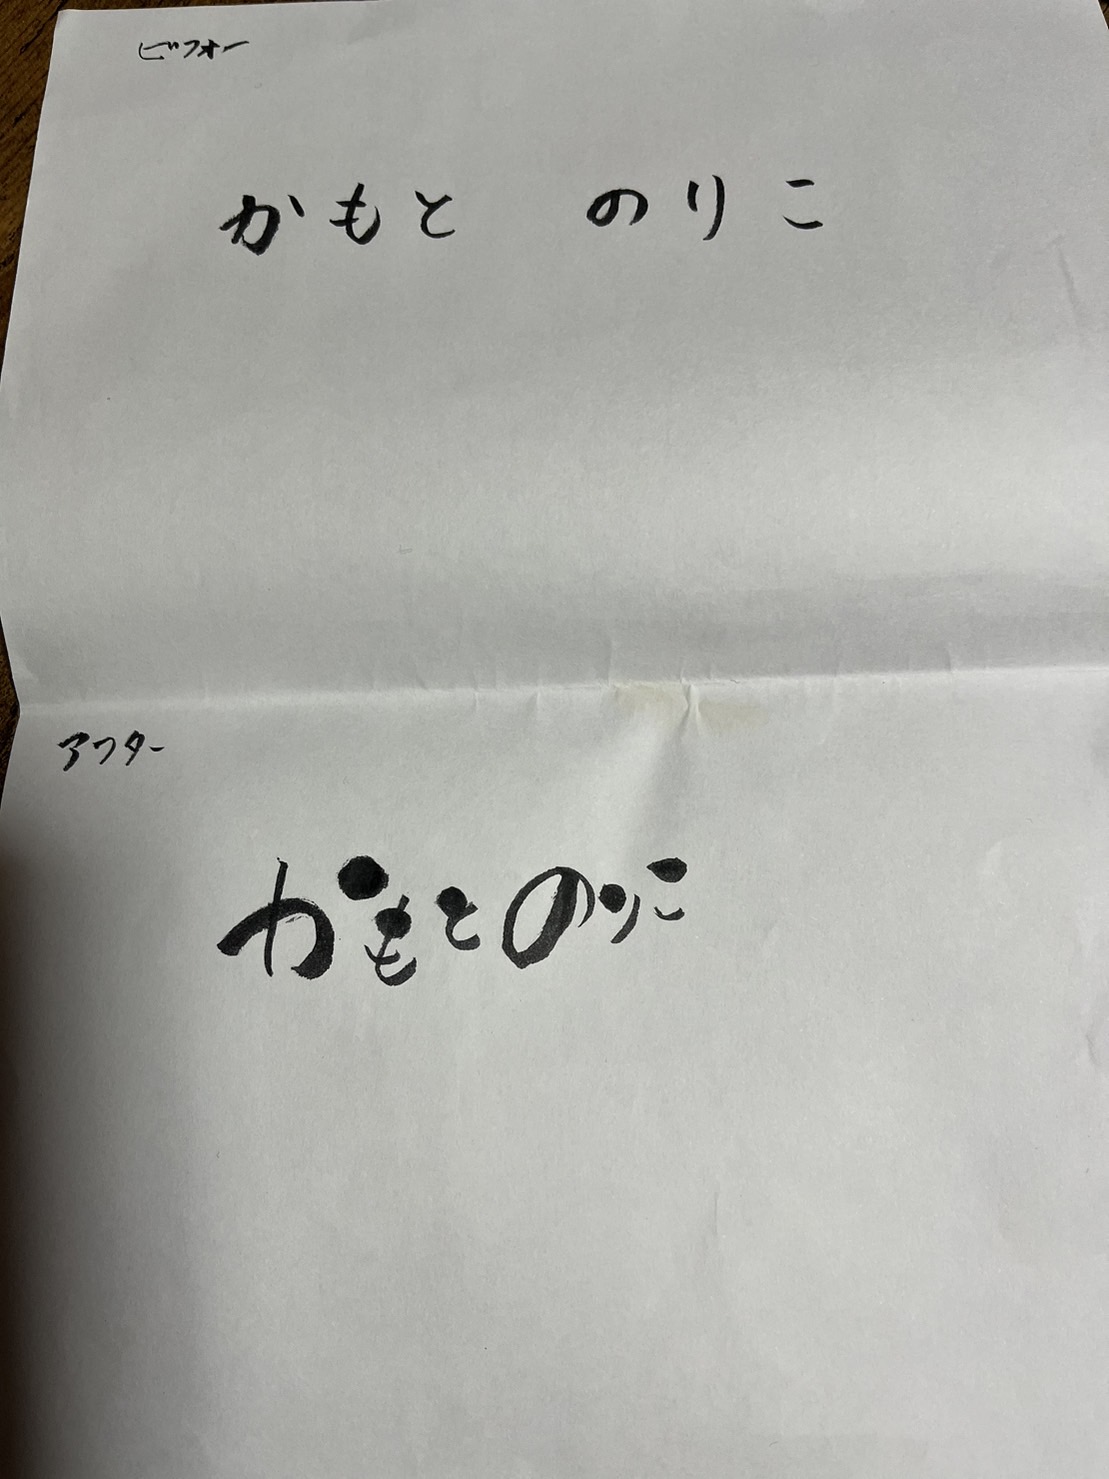 ビフォー
かもと のりこ
アフター
かもとのりこ